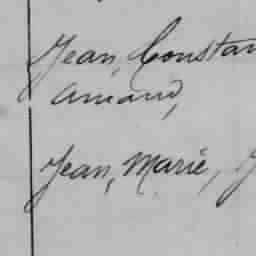 Jean, Constan
Amand,
Jean, Marie, J